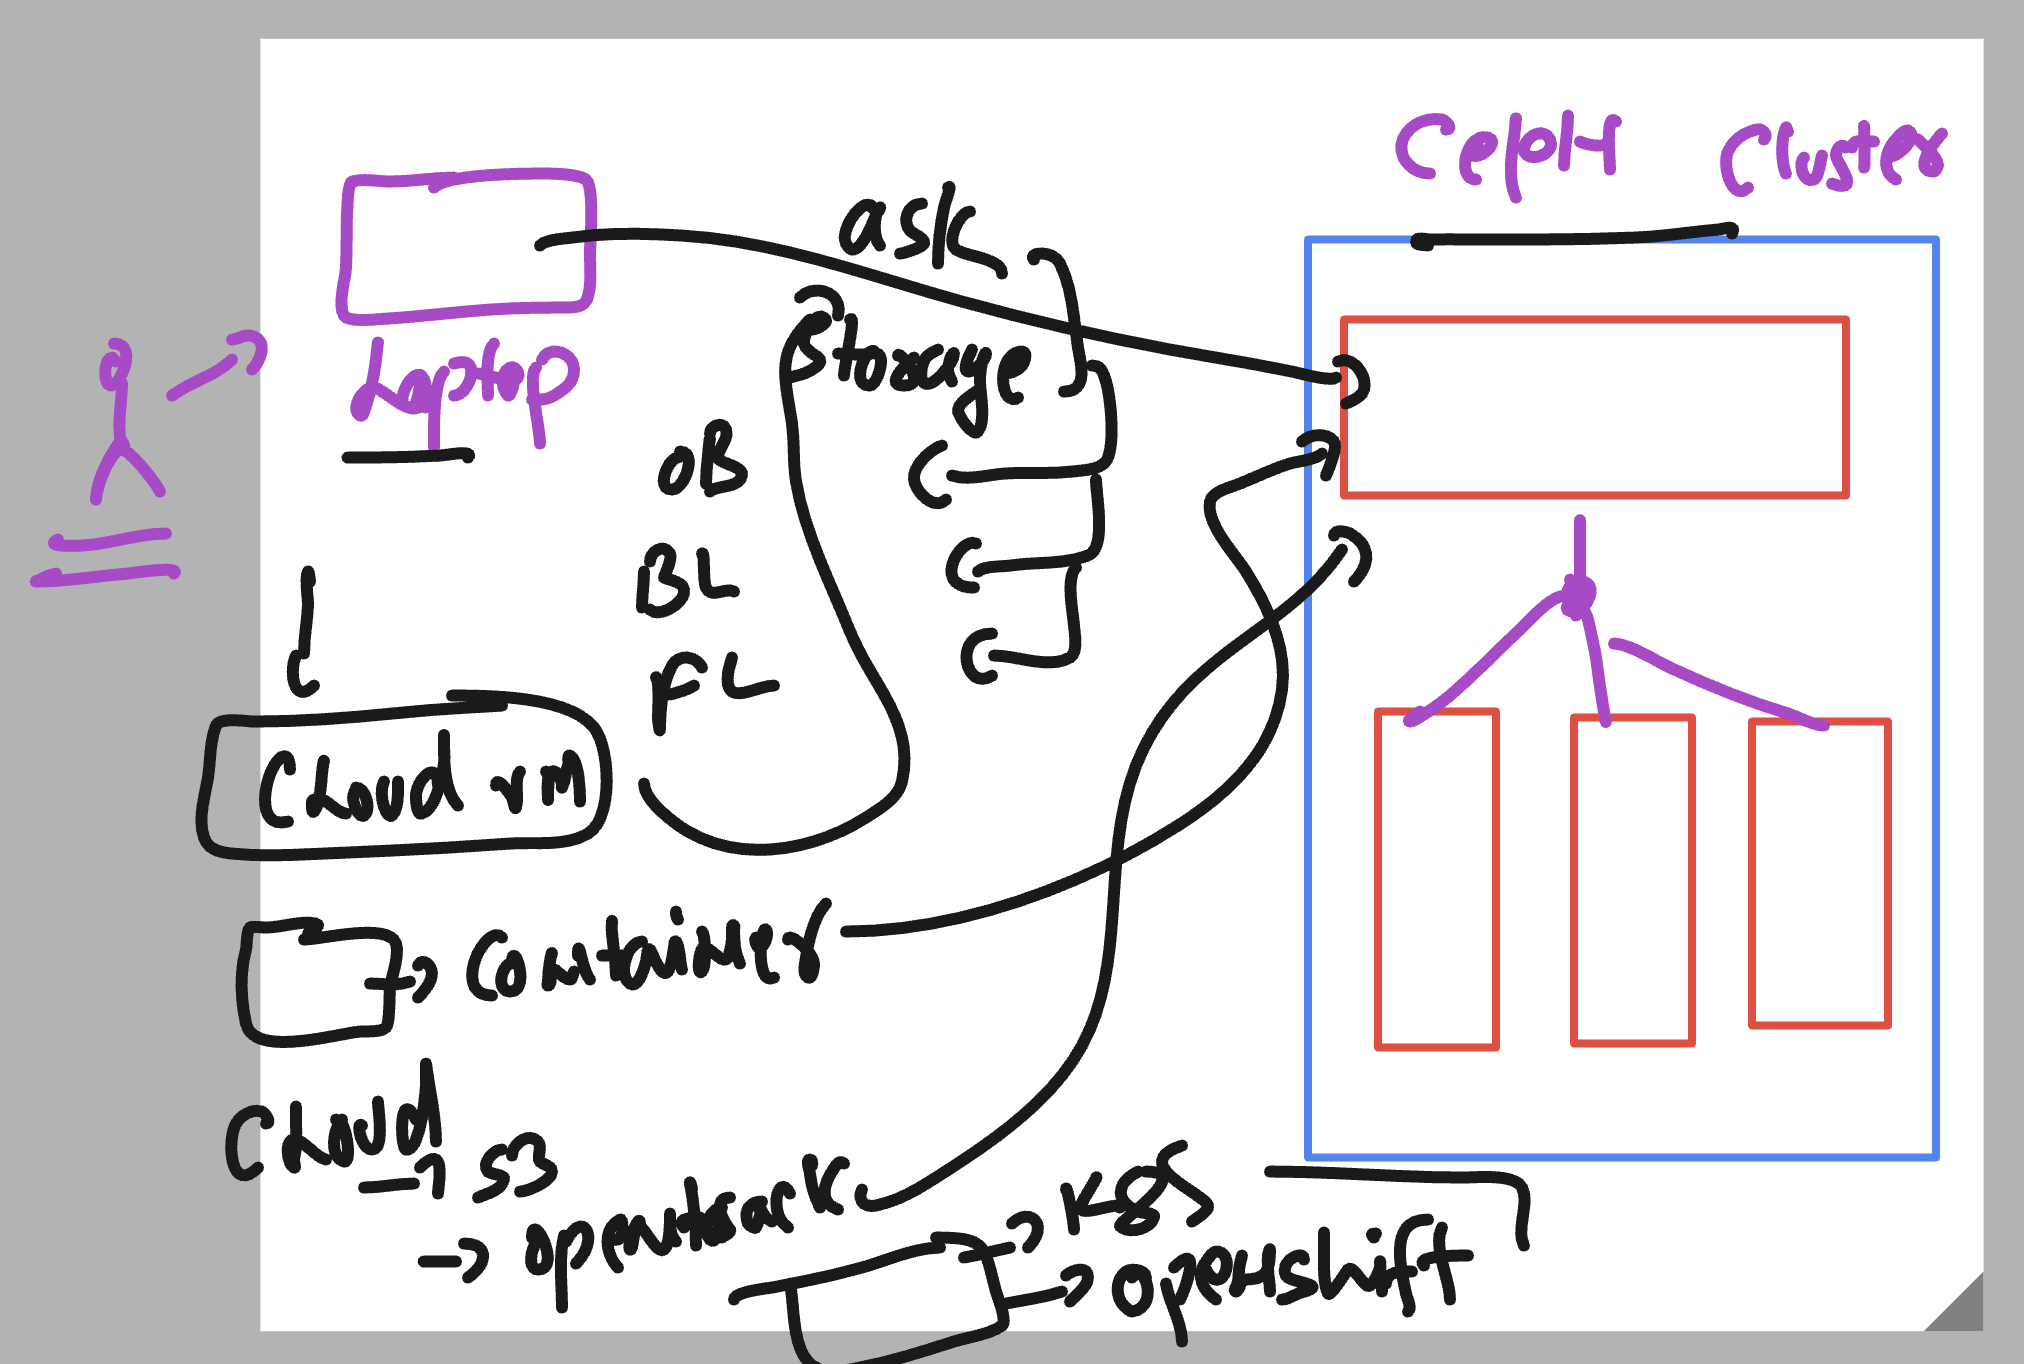 CepH Cluster
ask
Storage
Laptop
OB
BL
FL
CLoud vm
Container
CLoud
S3
openstack
K8S
openshift